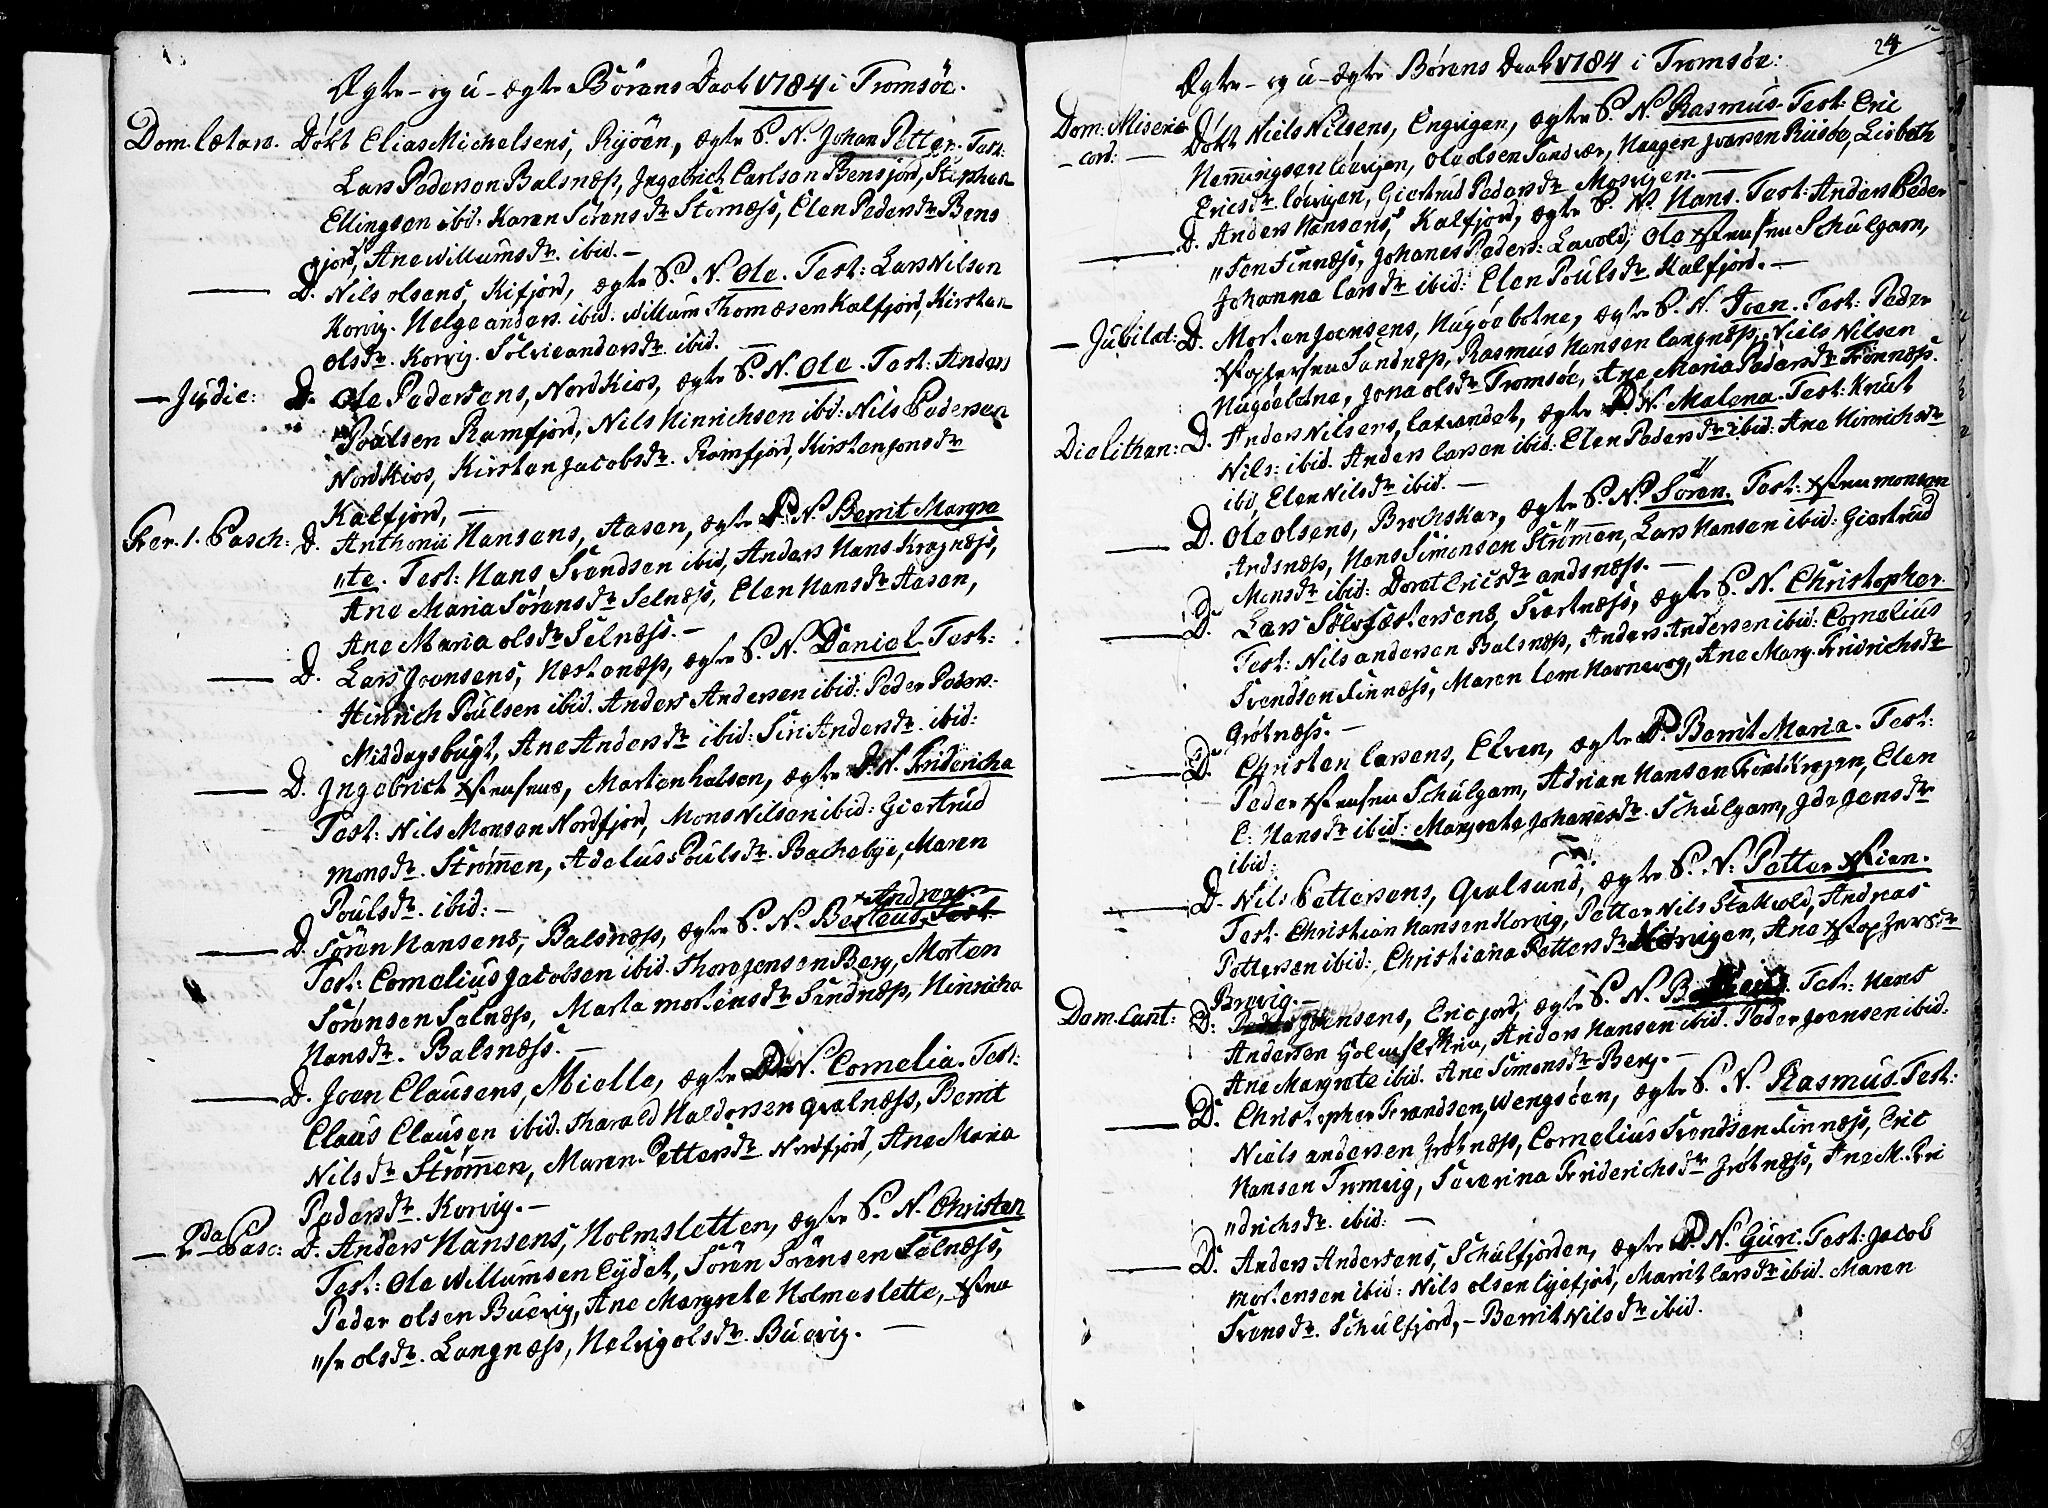 Ægte- og u-ægte Börens Daab 1784 i Tromsöe.
Dom. lætar. Døbt Elias Michelsens, Ryöen, ægte S. N. Johan Petter. Test:
Lars Pedersen Balsnæss, Ingebrict Carlsen Bensjord, Stephan
Ellingsen ibid. Karen Sörens dr Stornæss, Elen Peders dr Bens
jord, Ane Willums dr ibid. -
D. Nils Olsens, Kifjord, ægte S. N. Ole. Test: Lars Nilsen
Korvig. Helge anders. ibid. Willum Thomæsen Kalfjord, Kirsten
ols dr. Korvig. Sölvie anders dr. ibid. -
- Judic: D. Ole Pedersens, Nordkios, ægte S. N. Ole. Test: Anders
Poulsen Ramfjord, Nils Hinrichsen ibid: Nils Pedersen
Nordkios, Kirsten Jacobs dr. Ramfjord, Kirsten Jons dr
Kalfjord, -
Fer. 1. Pasch: D. Anthonii Hansens, Aasen, ægte D. N. Berrit Margre
"te. Test: Hans Svendsen ibid, Anders Hans: Kragnæss,
Ane Maria Sörens dr Selnæss, Elen Hans dr Aasen,
Ane Maria ols dr Selnæss. -
D. Lars Joensens, Næstenæss, ægte S. N. Daniel. Test:
Hinrich Poulsen ibid. Anders Andersen ibid: Peder Peders:
Middagsbugt, Ane Anders dr ibid: Siri Anders dr. ibid:
D. Ingebrict Jensens, Mortenhalsen, ægte D. N. Fridericha
Test: Nils Monsen Nordfjord, Mons Nilsen ibid: Giertrud
Mons dr. Strømen, Adelus Pouls dr. Bachebye, Maren
Pouls dr. ibid: -
Andreas
D. Sören Hansens, Balsnæss, ægte S. N. Berteus. Test:
Test: Cornelius Jacobsen ibid. Thore Jensen Berg, Morten
Sörensen Selnæss, Marta mortens dr Sandnæss, Hinricha
Hans dr. Balsnæss. -
D. Joen Clausens, Mielle, ægte D. N. Cornelia. Test:
Claus Clausen ibid. Tharald Haldorsen Qvalnæss, Berrit
Nils dr Strømen, Maren Petters dr Nordfjord, Ane Maria
Peders dr. Korvig. -
- 2da Pasc: D. Anders Hansens, Holmsletten, ægte S. N. Christen
Test: Ole Willumsen Eydet, Sören Sörensen Selnæss,
Peder olsen Buevig, Ane Margrete Holmeslette,
ols dr. Langnæss, Helvig ols dr. Buevig. -
24
Ægte- og u-ægte Börens Daab 1784 i Tromsöe:
Dom: Miseri
- cord: - Døbt Niels Nilsens, Engvigen, ægte S. N. Rasmus. Test: Eric
Hemmingsen löevigen, Ole olsen Sandvær, Haagen Iversen Riisöe, Lisbeth
Erics dr. löevigen, Giertrud Peders dr Mosvigen. -
D. Anders Hansens, Kalfjord, ægte S. N. Hans. Test: Anders Peder
"sen Finnæss, Johanes Peders: Lavold, Ole Jensen Schulgam,
Johanna Lars dr ibid: Elen Pouls dr Kalfjord. -
- Jubilat: D. Morten Joensens, Hugöebotne, ægte S. N. Joen. Test: Peder
Sandnæss, Rasmus Hansen Langnæss, Niels Nilsen
Hugöebotne, Jona ols dr Tromsöe, Ane Maria Peders dr Finnæss.
Die lithan: D. Anders Nilsens, Laxvandet, ægte D. N. Malena. Test: Knut
Nils: ibid. Anders Larsen ibid: Elen Peders dr ibid: Ane Hinrichs dr
ibid, Elen Nils dr ibid. -
D. Ole olsens, Brechskar, ægte S. N. Sören. Test: monsen
Andsnæss, Hans Simonsen Strømen, Lars Hansen ibid: Giertrud
Mons dr ibid: Doret Erics dr andsnæss. -
D. Lars Sölvfæstersens, Svartnæss, ægte S. N. Christopher
Test: Nils andersen Balsnæss, Anders Andersen ibid: Cornelius
Svendsen Finnæss, Maren Lem Havnevog, Ane Marg. Fridrichs dr
Grötnæss. -
D. Christen Larsens, Elven, ægte D. Berrit Maria. Test:
Peder Jensen Schulgam, Adrian Hansen Findkrogen, Elen
C: Hans dr ibid: Margrete Johanes dr Schulgam, Ide Jens dr
ibid:
D. Nils Pettersens, Qvalsund, ægte S. N. Petter
Test: Christian Hansen Korvig, Petter Nils: Stakvold, Andreas
Pettersen ibid:, Christiana Petters dr, Ane
Brevig. -
Dom. Cant: D. Joensens, Ericjord, ægte S. N. Test: Hans
Andersen, Anders Hansen ibid. Peder Joensen ibid.
Ane Margrete ibid. Ane Simons dr Berg. -
D. Christopher Frandsen, Wengsöen, ægte S. N. Rasmus. Test:
Niels andersen Grötnæss, Cornelius Svendsen Finnæss, Eric
Hansen Tromvig, Severina Friderichs dr Grötnæss, Ane M. Fri
"drichs dr. ibid: -
D. Anders Andersens, Schulfjorden, ægte D. N. Guri. Test: Jacob
Mortensen ibid: Nils olsen Lyefjord, Marrit Lars dr ibid. Maren
Svens dr. Schulfjord, - Berrit Nils dr ibid.